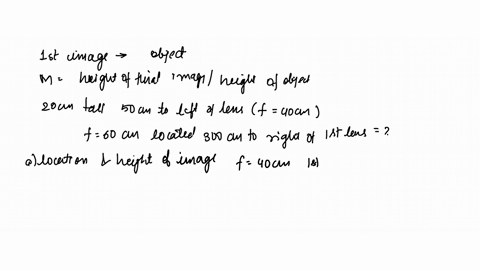 1st image → object
M = height of final image / height of object
20cm tall 50cm to left of lens (f = 40cm)
f = 60 cm located 300 cm to right of 1st lens = ?
a) location & height of image f = 40cm 1st